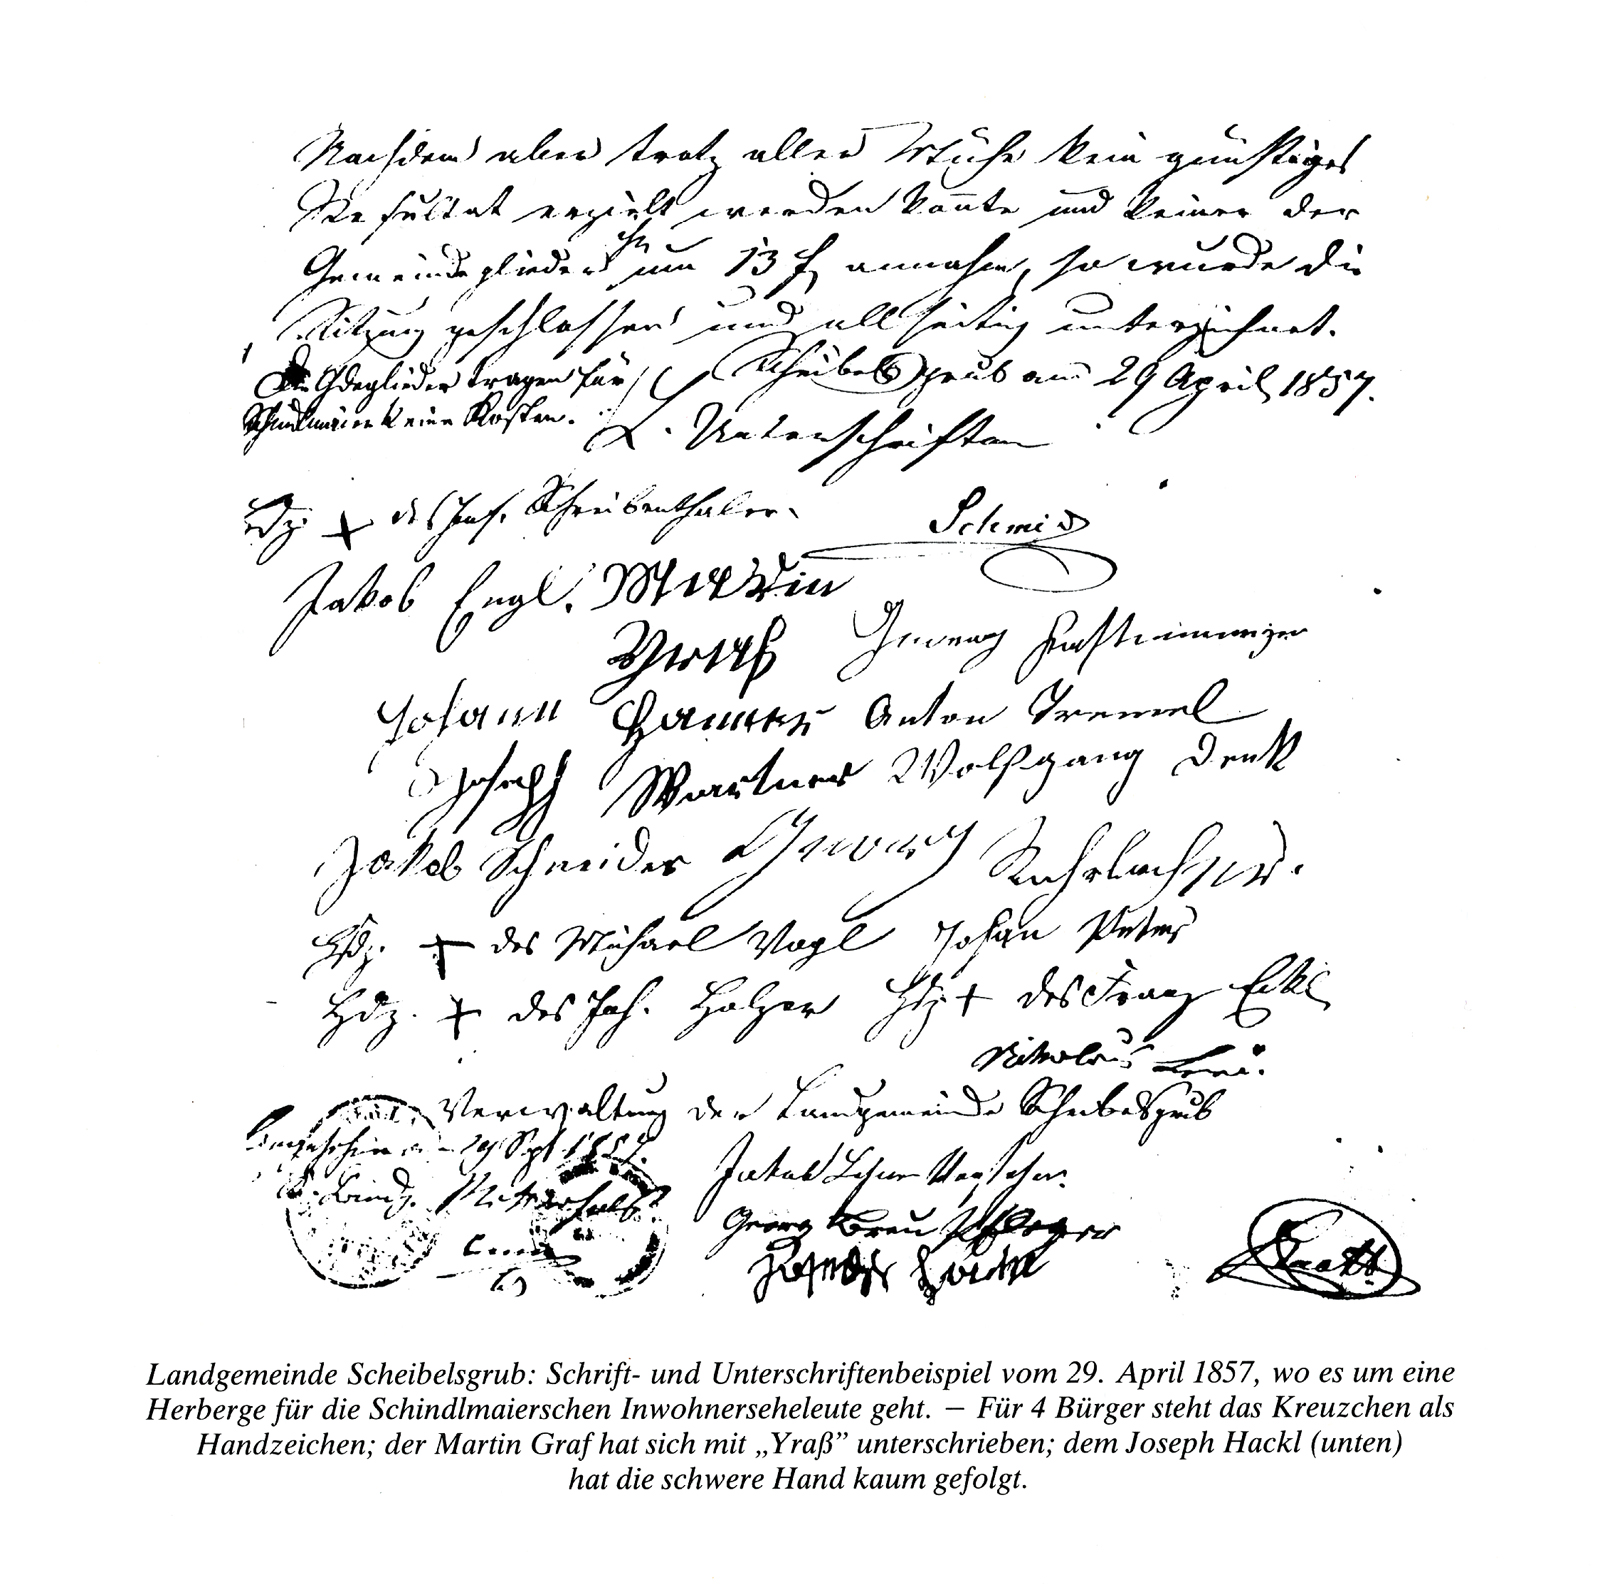 Nachdem aber trotz aller Mühe kein günstiges
Resultat erzielt werden konnte und keiner der
Gemeindeglieder ihn um 13 f annahm, so wurde die
Sitzung geschlossen und allseitig unterzeichnet.
Die Gdeglieder tragen für
Schindlmaier keine Kosten.
Scheibelsgrub am 29 April 1857.
Unterschriften
Hdz. + des Jos. Scheibenthaler
Schmid
Jakob Engl. Martin
Yraß Georg
Johann Hammer Anton Tremel
Joseph Wartner Wolfgang Denk
Jakob Schneider Georg
Hdz. + des Michael Vogl Johan Peter
Hdz. + des Joh. Holzer Hdz + des Franz Eckl
Nikolaus
Verwaltung der Landgemeinde Scheibelsgrub
29 Sept 1857.
Mitterfels
Jakob Vorsteher
Georg Breu Pfleger
Joseph Hackl
Landgemeinde Scheibelsgrub: Schrift- und Unterschriftenbeispiel vom 29. April 1857, wo es um eine
Herberge für die Schindlmaierschen Inwohnerseheleute geht. — Für 4 Bürger steht das Kreuzchen als
Handzeichen; der Martin Graf hat sich mit „Yraß” unterschrieben; dem Joseph Hackl (unten)
hat die schwere Hand kaum gefolgt.